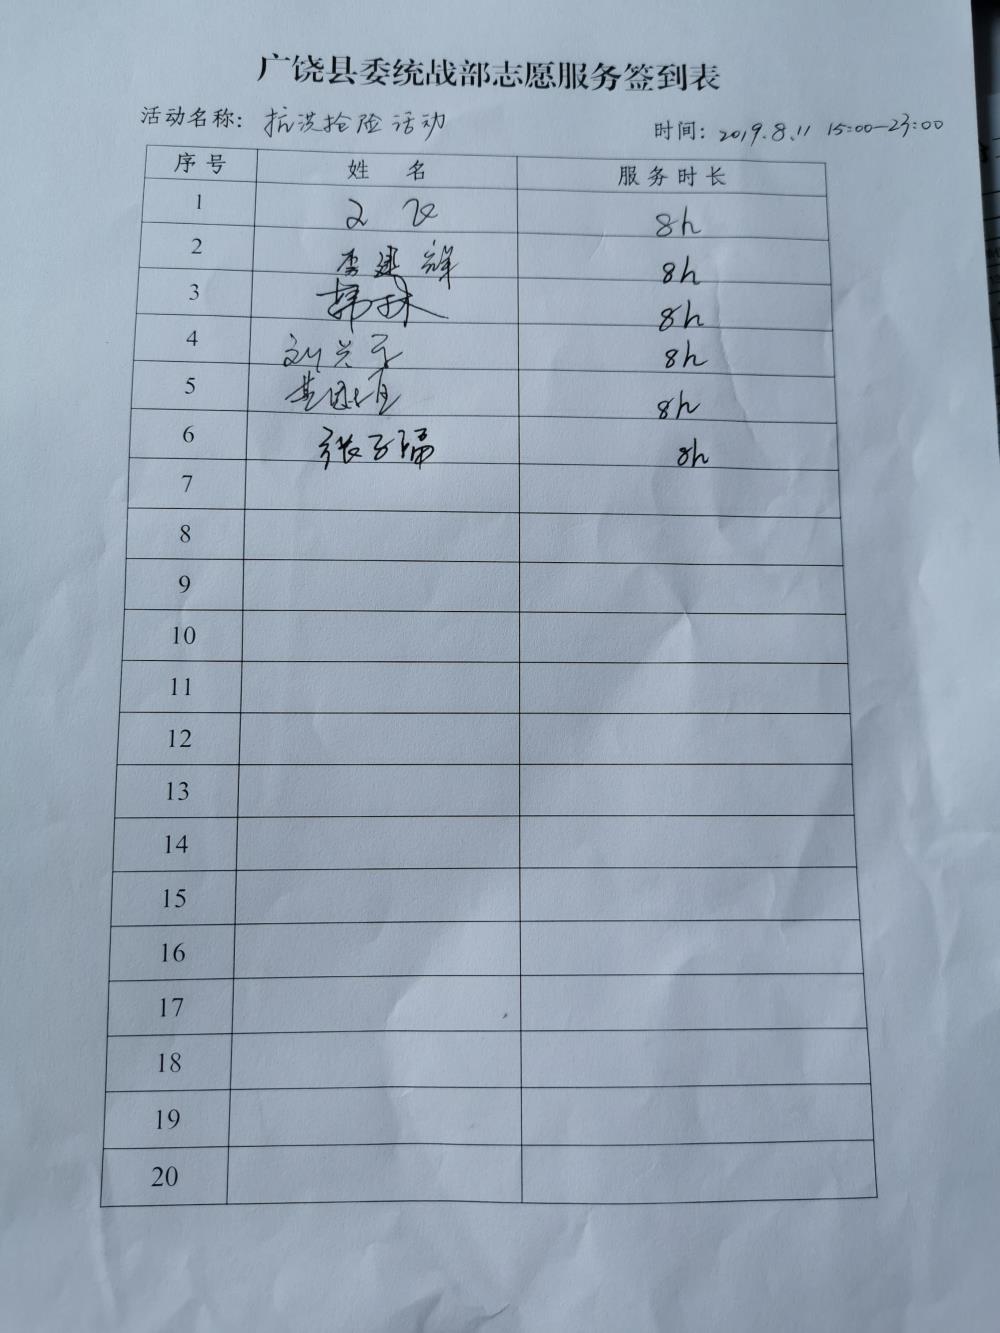 广饶县委统战部志愿服务签到表
活动名称: 抗洪抢险活动 时间: 2019.8.11 15:00—23:00
序号 姓名 服务时长
1 8h
2 李建祥 8h
3 韩林 8h
4 刘兴 8h
5 8h
6 张子瑞 8h
7
8
9
10
11
12
13
14
15
16
17
18
19
20